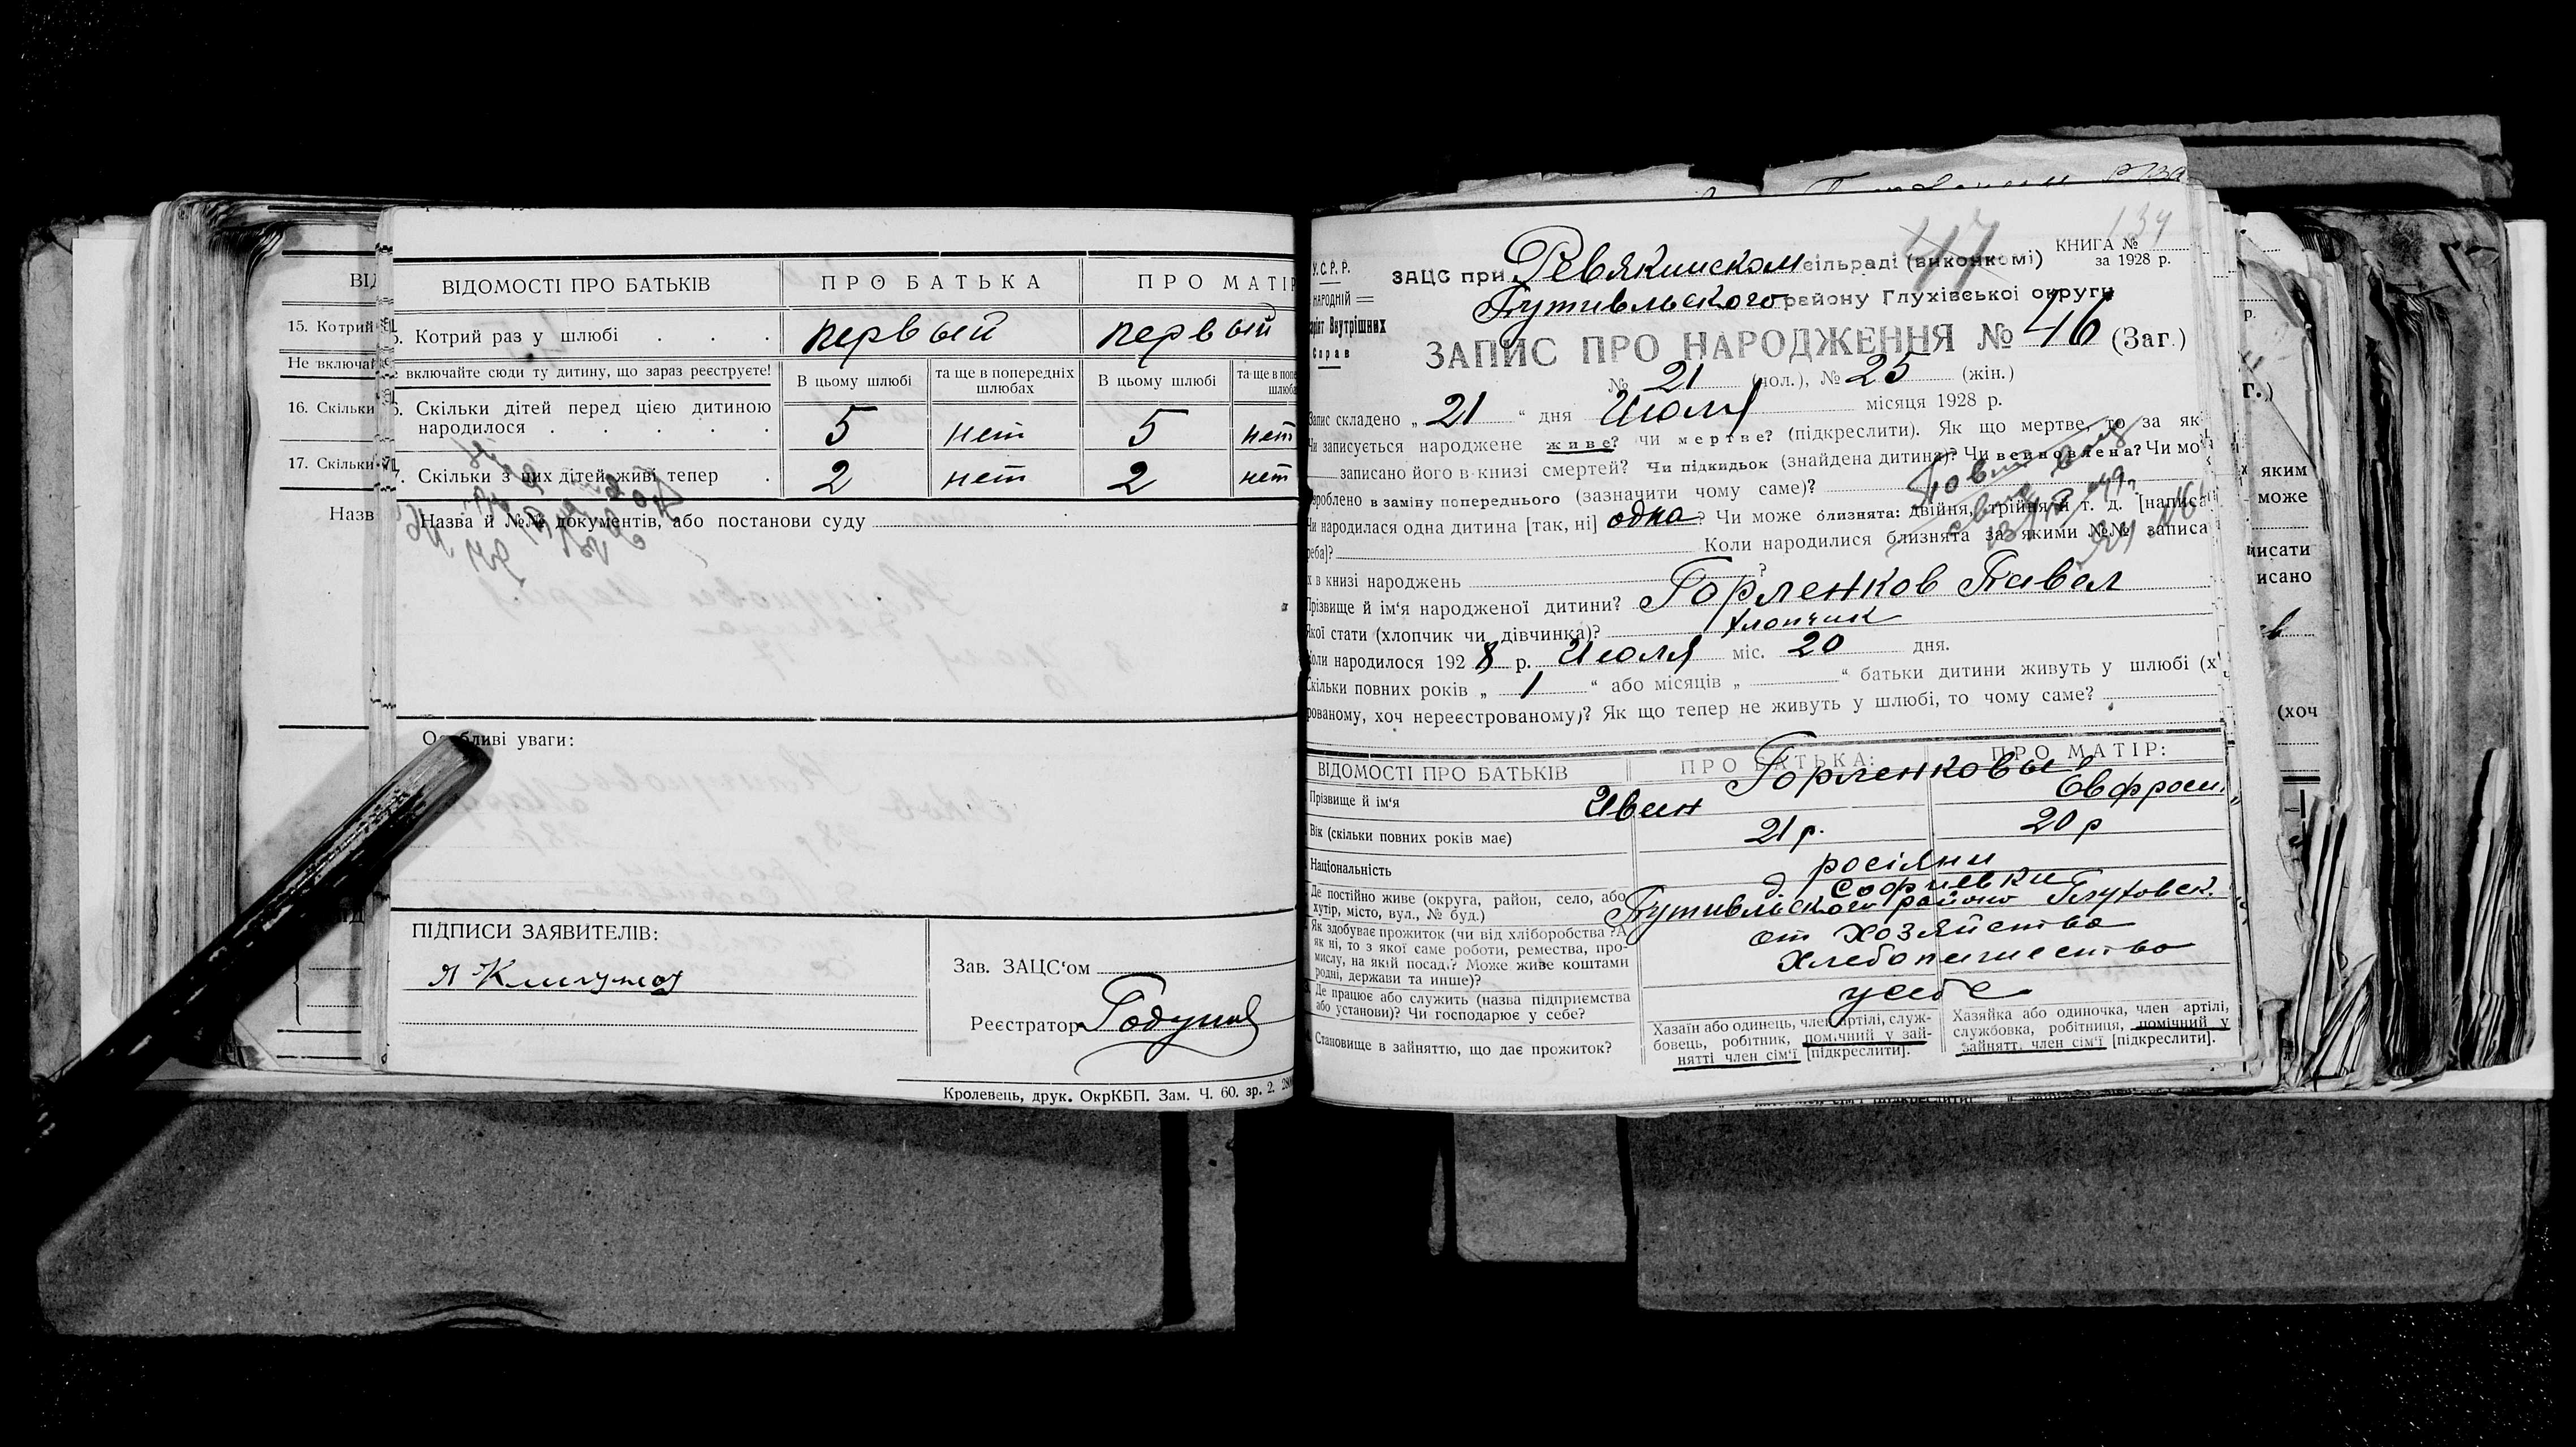 ВІДОМОСТІ ПРО БАТЬКІВ
ПРО БАТЬКА
ПРО МАТІР
15. Котрий
Котрий раз у шлюбі
первый
первый
Не включай
включайте сюди ту дитину, що зараз реєструєте!
В цьому шлюбі
та ще в попередніх шлюбах
В цьому шлюбі
16. Скільки
Скільки дітей перед цією дитиною
народилося
5
нет
5
нет
17. Скільки
Скільки з цих дітей живі тепер
2
нет
2
нет
Назв
Назва й №№ документів, або постанови суду
Особливі уваги:
ПІДПИСИ ЗАЯВИТЕЛІВ:
Зав. ЗАЦС'ом
Реєстратор Годунов
Кролевець, друк. ОкрКБП. Зам. Ч. 60. зр. 2.
134
У.С.Р.Р.
НАРОДНІЙ
Внутрішних
Справ
ЗАЦС при Ревякинском сільраді (виконкомі)
КНИГА №
за 1928 р.
Путивльского району Глухівської округи
ЗАПИС ПРО НАРОДЖЕННЯ № 46 (Заг.)
№ 21 (чол.), № 25 (жін.)
Запис складено „ 21 “ дня Июля місяця 1928 р.
Чи записується народжене живе? чи мертве? (підкреслити). Як що мертве, то за як
записано його в книзі смертей? Чи підкидьок (знайдена дитина)? Чи всиновлена? Чи мо
зроблено в заміну попереднього (зазначити чому саме)?
Чи народилася одна дитина [так, ні] одна? Чи може близнята: двійня, трійня й т. д. [написа
треба]? Коли народилися близнята за якими №№ записа
їх в книзі народжень ?
Прізвище й ім'я народженої дитини? Горленков Павел
Якої стати (хлопчик чи дівчинка)? хлопчик
Коли народилося 1928 р. Июля міс. 20 дня.
Скільки повних років „ 1 “ або місяців „ “ батьки дитини живуть у шлюбі (х
рованому, хоч нереєстрованому)? Як що тепер не живуть у шлюбі, то чому саме?
ВІДОМОСТІ ПРО БАТЬКІВ
ПРО БАТЬКА:
ПРО МАТІР:
Горленковы
Прізвище й ім'я
Иван
Евфроси
Вік (скільки повних років має)
21 р.
20 р
Національність
росіяни
Де постійно живе (округа, район, село, або
хутір, місто, вул., № буд.)
д. Софиевки
Путивльского району Глуховск.
Як здобуває прожиток (чи від хліборобства? А
як ні, то з якої саме роботи, ремества, про-
мислу, на якій посаді? Може живе коштами
родні, держави та инше)?
от хозяйства
хлебопашество
Де працює або служить (назва підприємства
або установи)? Чи господарює у себе?
у себе
Становище в зайняттю, що дає прожиток?
Хазяїн або одинець, член артілі, служ-
бовець, робітник, помічний у зай-
нятті член сім'ї [підкреслити].
Хазяйка або одиночка, член артілі,
службовка, робітниця, помічний у
зайнятті член сім'ї [підкреслити].
яким
може
писати
исано
(хоч